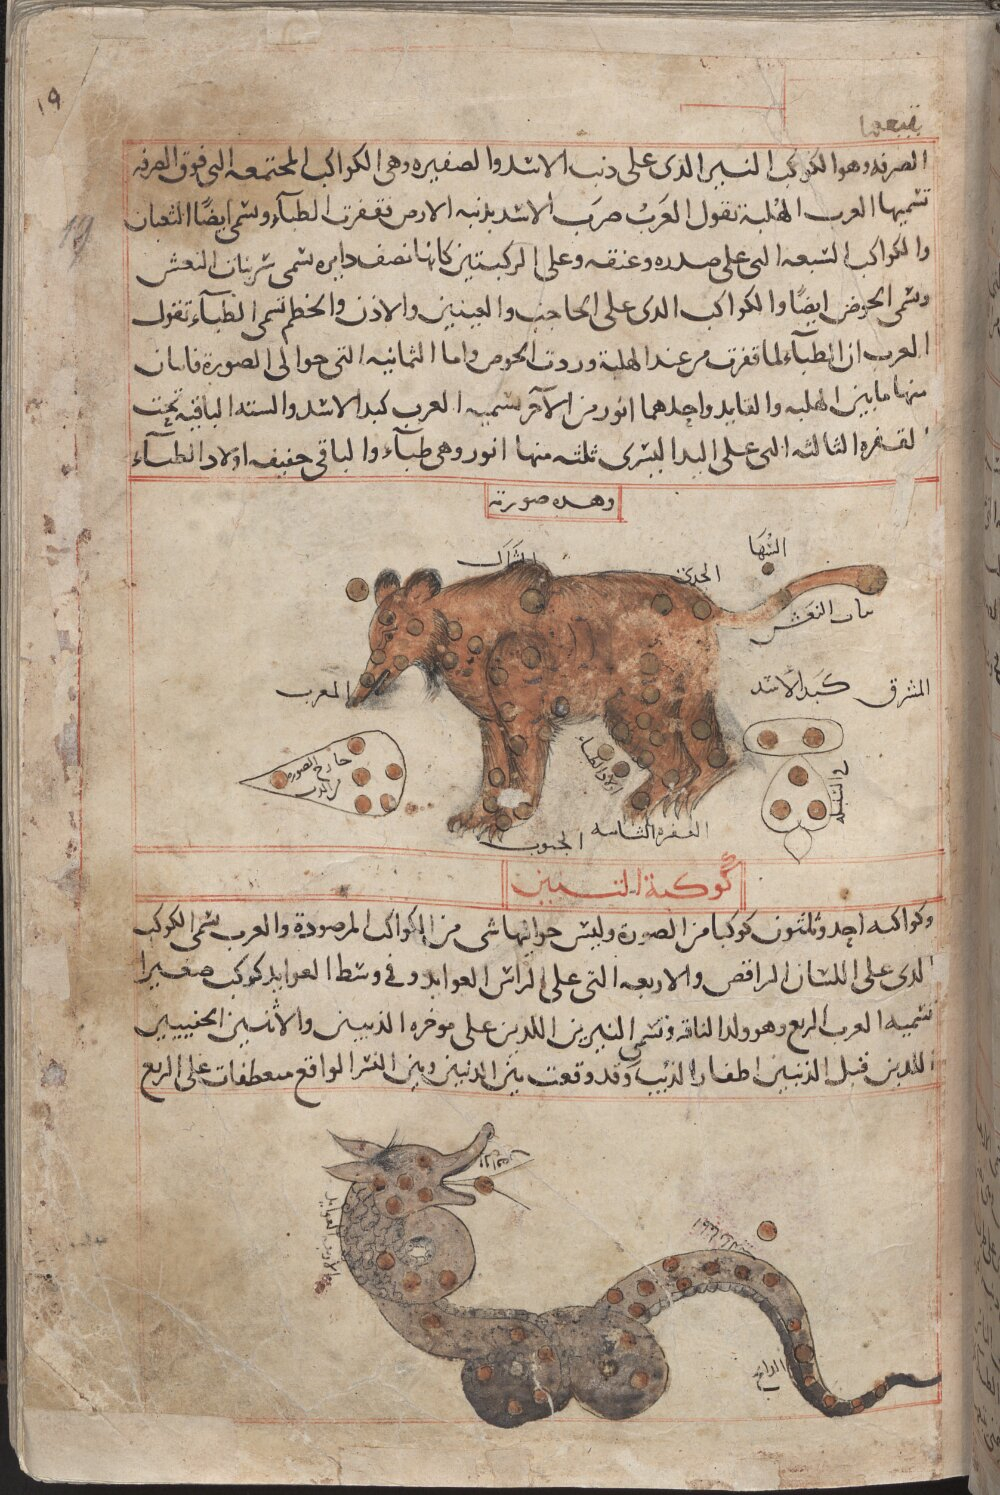 ١٩
19
الصرفه وهو الكوكب النير الذى على ذنب الاسد والصغيره وهى الكواكب المجتمعه التى فوق الصرفه
تسميها العرب الهلبة تقول العرب ضرب الاسد بذنبه الارض فقفزت الظباء وتسمى ايضًا الثعبان
والكواكب السبعه التى على صدره وعنقه وعلى الركبتين كانها نصف دايره تسمى سرير بنات النعش
وتسمى الحوض ايضًا والكواكب الذى على الحاجب والعينين والاذن والخطم تسمى الظباء تقول
العرب ان الظباء لما قفزت من عند الهلبة وردت الحوض واما الثمانيه التى حوالى الصورة فاثنان
منها ما بين الهلبه والقايد واحدهما انور من الآخر تسميه العرب كبد الاسد والسته الباقيه تحت
القفزه الثالثه التى على اليد اليسرى ثلثه منها انور وهى ظباء والباقى خفيفه اولاد الظباء
وهذه صورته
السُّهَا
الجدى
المراق
بنات النعش
المشرق
كبد الاسد
المغرب
خارج الصوره
من الدب
اولاد الظباء
القفزه الثالثه
الجنوب
كوكبة التنين
وكواكبه احد وثلثون كوكبا من الصورة وليس حواليها شى من الكواكب المرصودة والعرب تسمى الكوكب
الذى على اللسان الراقص والاربعه التى على الراس العوايد وفى وسط العوايد كوكب صغيرا
تسميه العرب الربع وهو ولد الناقه وتسمى النيرين اللذين على موخره الذيبين والاثنين الخفيين
اللذين قبل الذيبين اظفار الذيب وقد وقعت بين الذيبين وبين النسر الواقع منعطفات على الربع
الراقص
الاربع العوايد
اظفار الذيب